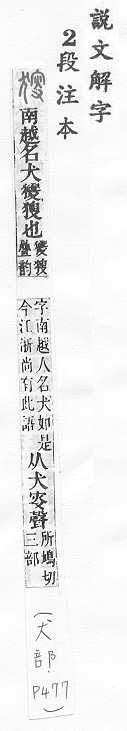 說文解字
2段注本
獀
南越名犬獿獀也
獿獀
疊韵
字南越人名犬如是
今江浙尚有此語
从犬叜聲
所鳩切
三部
(犬部.P477)